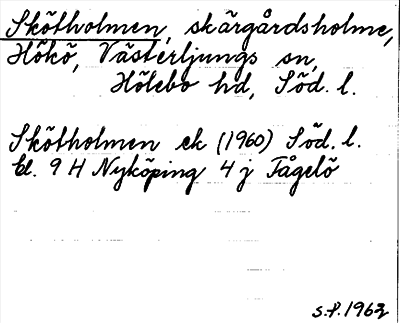 Skötholmen, skärgårdsholme,
Hökö, Västerljungs sn,
Hölebo hd, Söd. l.
Skötholmen ek (1960) Söd. l.
bl. 9 H Nyköping 4 j Fågelö
s.f. 1963